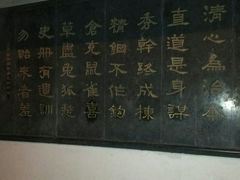 清心為治本
直道是身謀
秀幹終成棟
精鋼不作鈎
倉充鼠雀喜
草盡兔狐愁
史冊有遺訓
勿貽來者羞